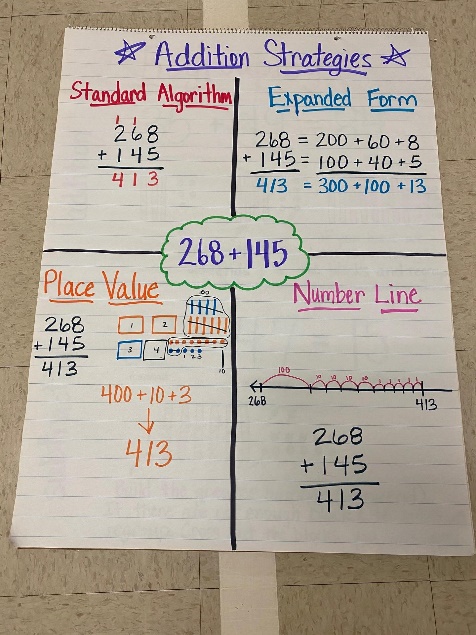 Addition Strategies
Standard Algorithm
1 1
268
+ 145
413
Expanded Form
268 = 200 + 60 + 8
+ 145 = 100 + 40 + 5
413 = 300 + 100 + 13
268 + 145
Place Value
268
+ 145
413
1 2
3 4
1 2 3
10
400 + 10 + 3
413
Number Line
100 10 10 10 10
268 413
268
+ 145
413